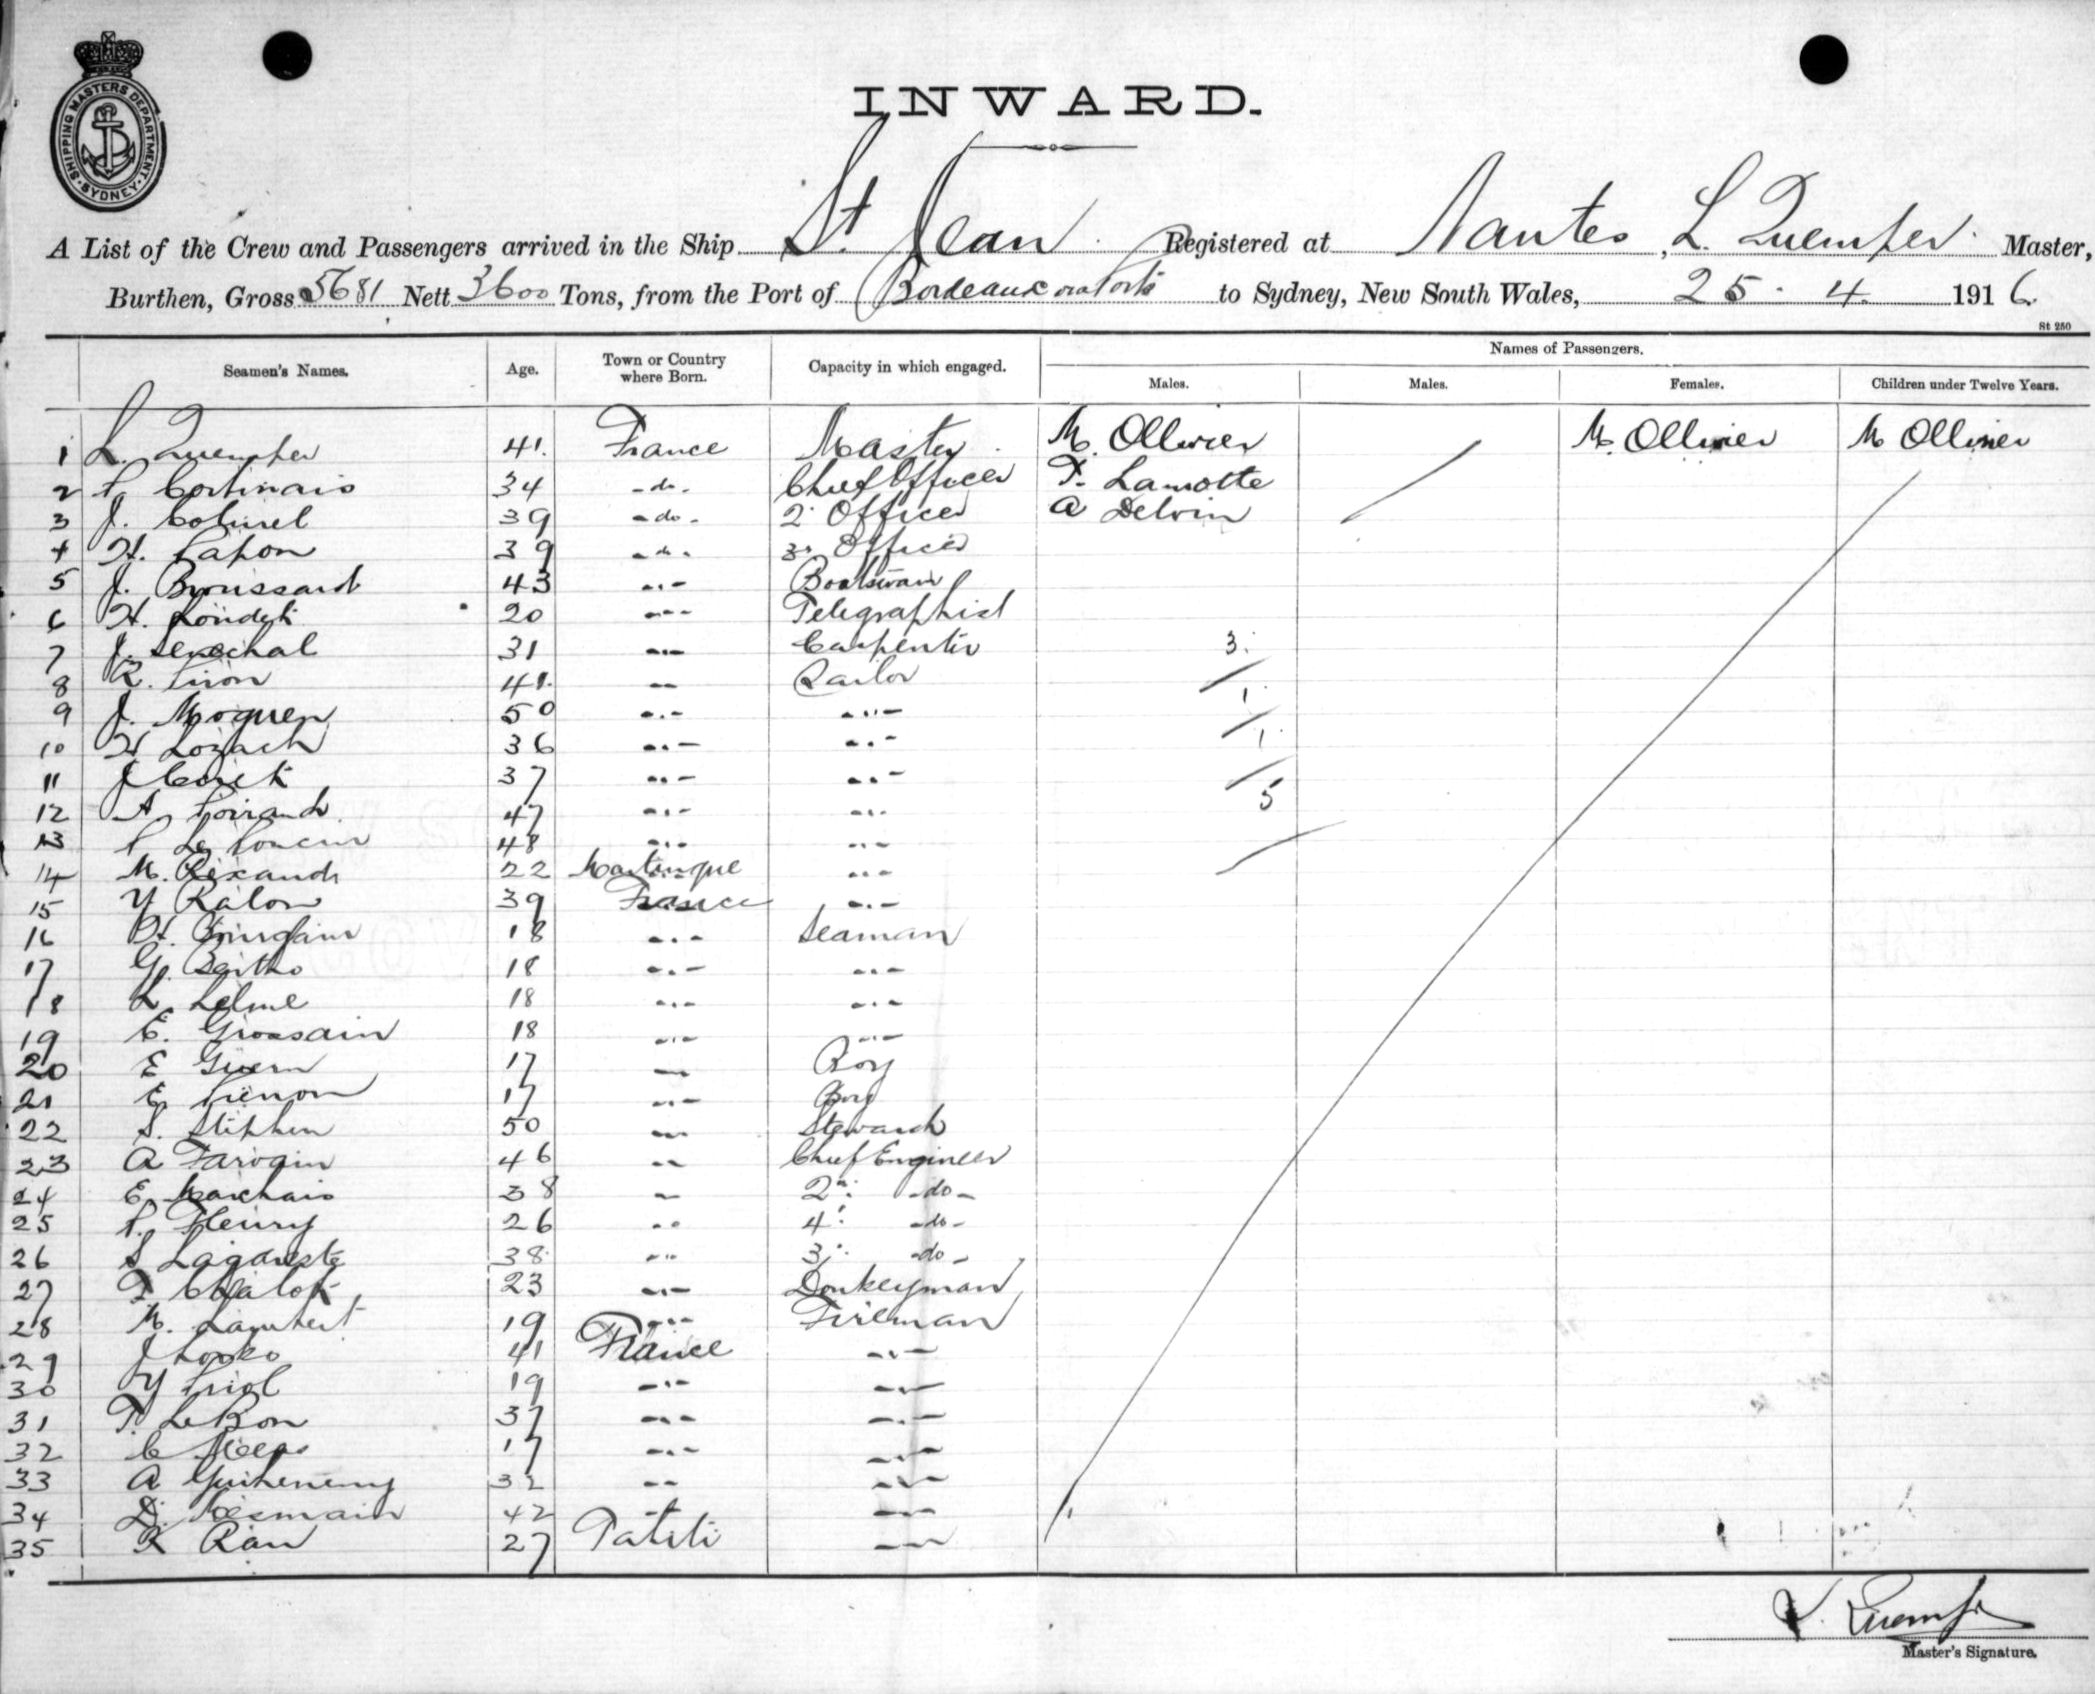 SHIPPING MASTERS DEPARTMENT. SYDNEY.
INWARD.
A List of the Crew and Passengers arrived in the Ship St. Jean Registered at Nantes, L. Quemper Master,
Burthen, Gross 5681 Nett 3600 Tons, from the Port of Bordeaux via Ports to Sydney, New South Wales, 25. 4. 1916.
St 250
Seamen's Names. Age. Town or Country where Born. Capacity in which engaged. Names of Passengers.
Males. Males. Females. Children under Twelve Years.
1 L. Quemper 41. France Master M. Ollivier M. Ollivier M Ollivier
2 P. Cortinais 34 -do- Chief Officer F. Lamotte
3 J. Colinel 39 -do- 2 Officer A Delvin
4 H. Papon 39 -do- 3 Officer
5 J. Broussard 43 Boatswain
6 H. 20 Telegraphist
7 J. Senechal 31 Carpenter 3.
8 R. 41. Sailor 1.
9 J. Moguen 50
10 H Lozach 36 1.
11 J 37 5
12 A 47
13 P Le 48
14 M. 22 Martinique
15 Y Ralon 39 France
16 H. 18 Seaman
17 G. Bertho 18
18 L. Lelme 18
19 E. Grossain 18
20 E Guern 17 Boy
21 E 17 Boy
22 S. Stephen 50 Steward
23 A Farogin 46 Chief Engineer
24 E. Marchais 38 2n. -do-
25 P. Fleury 26 4. -do-
26 S Lagareste 38. 3. -do-
27 F 23 Donkeyman
28 M. Lambert 19 Fireman
29 J 41 France
30 Y Priol 19
31 F. Le Bon 37
32 C 17
33 A Guiheneuy 32
34 D. 42
35 R Rau 27 Tahiti
L. Quemper
Master's Signature.